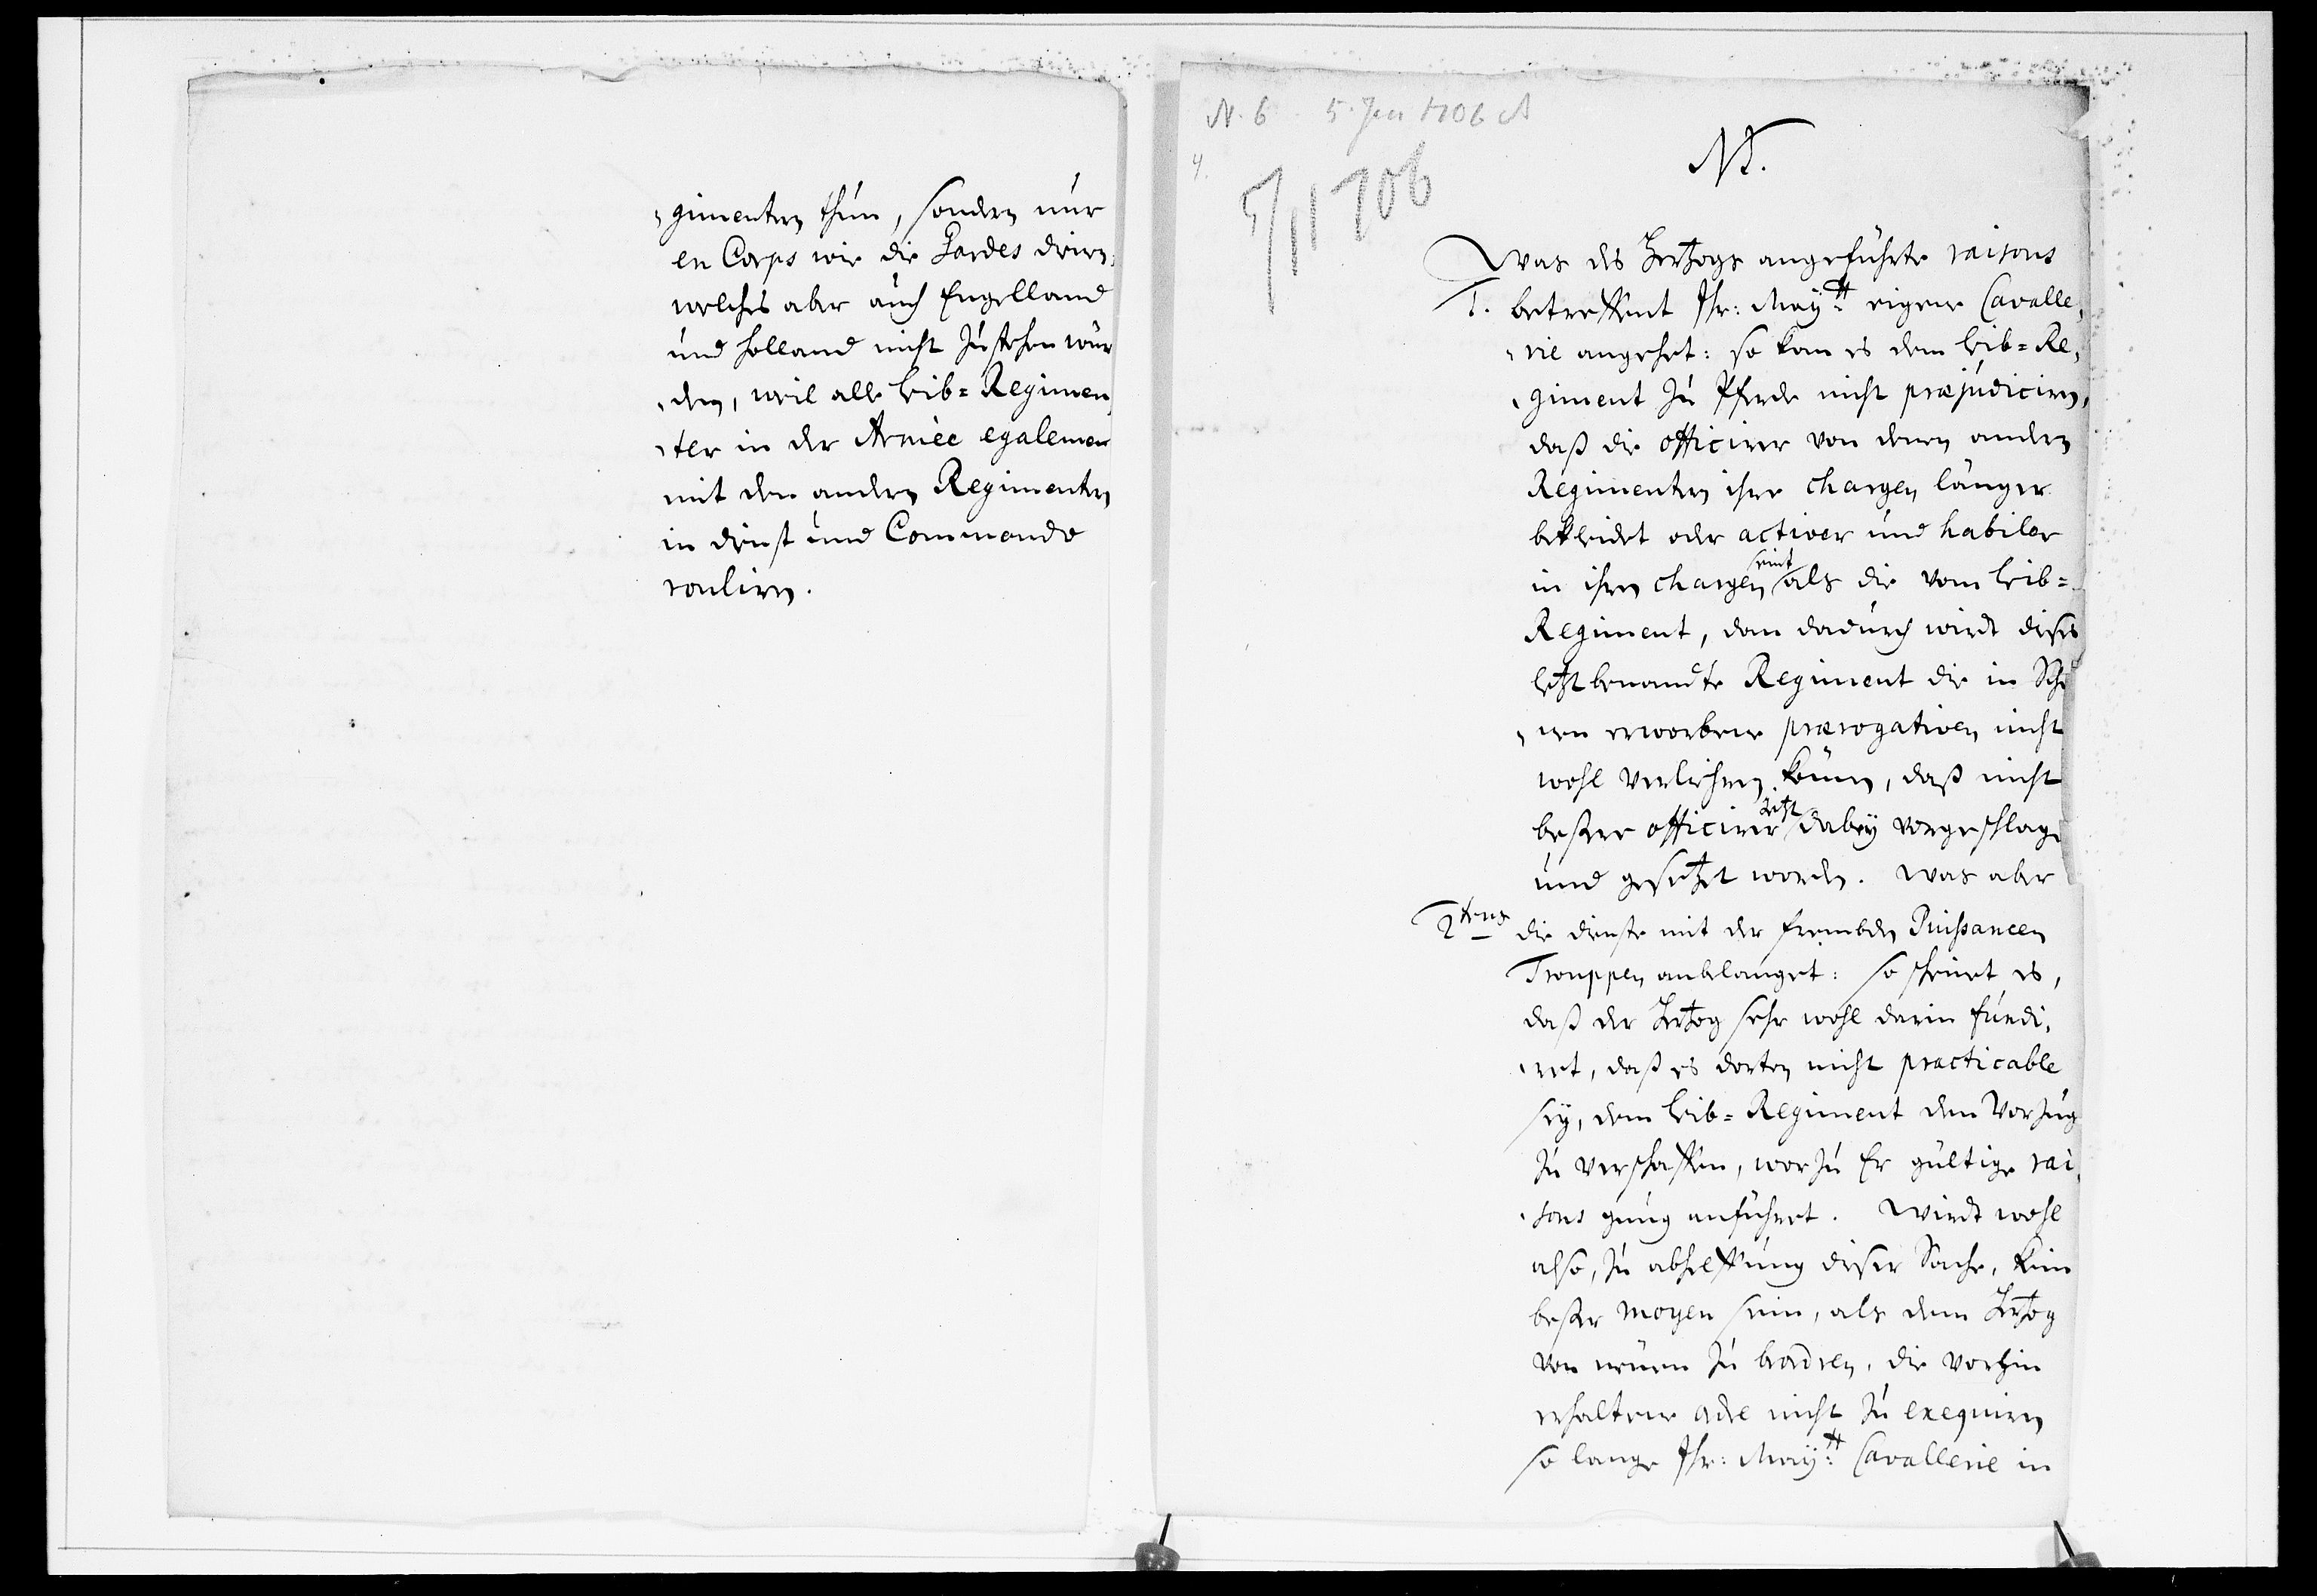 gimentern thun, sondern nur
en Corps wie die Gardes dienen,
welches aber auch Engelland
und Holland nicht zustehen wür
den, weil alle Leib=Regimen
ter in der Armée egalemen
mit den andern Regimentern
in dienst und Commando
rouliren.
N. 6 5. Jan 1706 A
4.
5/11 706
NB.
Was des Hertzogs angeführte raisons
1. betreffent Ihr: Maytt: eigene Cavalle,
rie angehet: so kan es dem Leib=Re,
giment zu Pferde nicht præjudiciren,
daß die officirer von denen andern
Regimentern ihre chargen länger
bekleidet oder activer und habiler
in ihren chargen seint als die vom Leib=
Regiment, dan dadurch wirdt dieses
letzt benandte Regiment die in Sche
nen erworbene prærogativen nicht
wohl verliehren können, daß nicht
beßere officirer jetzt dabey vorgeschlage
und gesetzet worden. Was aber
2tens die dienste mit der frembden Puissancen
Trouppen anbelanget: so scheinet es,
daß der Hertzog sehr wohl darin fundi,
ret, daß es dorten nicht practicable
sey, dem Leib=Regiment den Vorzug
zu verschaffen, worzu Er gültige rai,
sons gnug anführet. Wirdt wohl
also, zu abhelffung dieser Sache, kein
beßer moyen sein, als dem Hertzog
von neuen zu beordren, die vorhin
erhaltene ordre nicht zu exequiren
so lange Ihr: Maytt: Cavallerie in